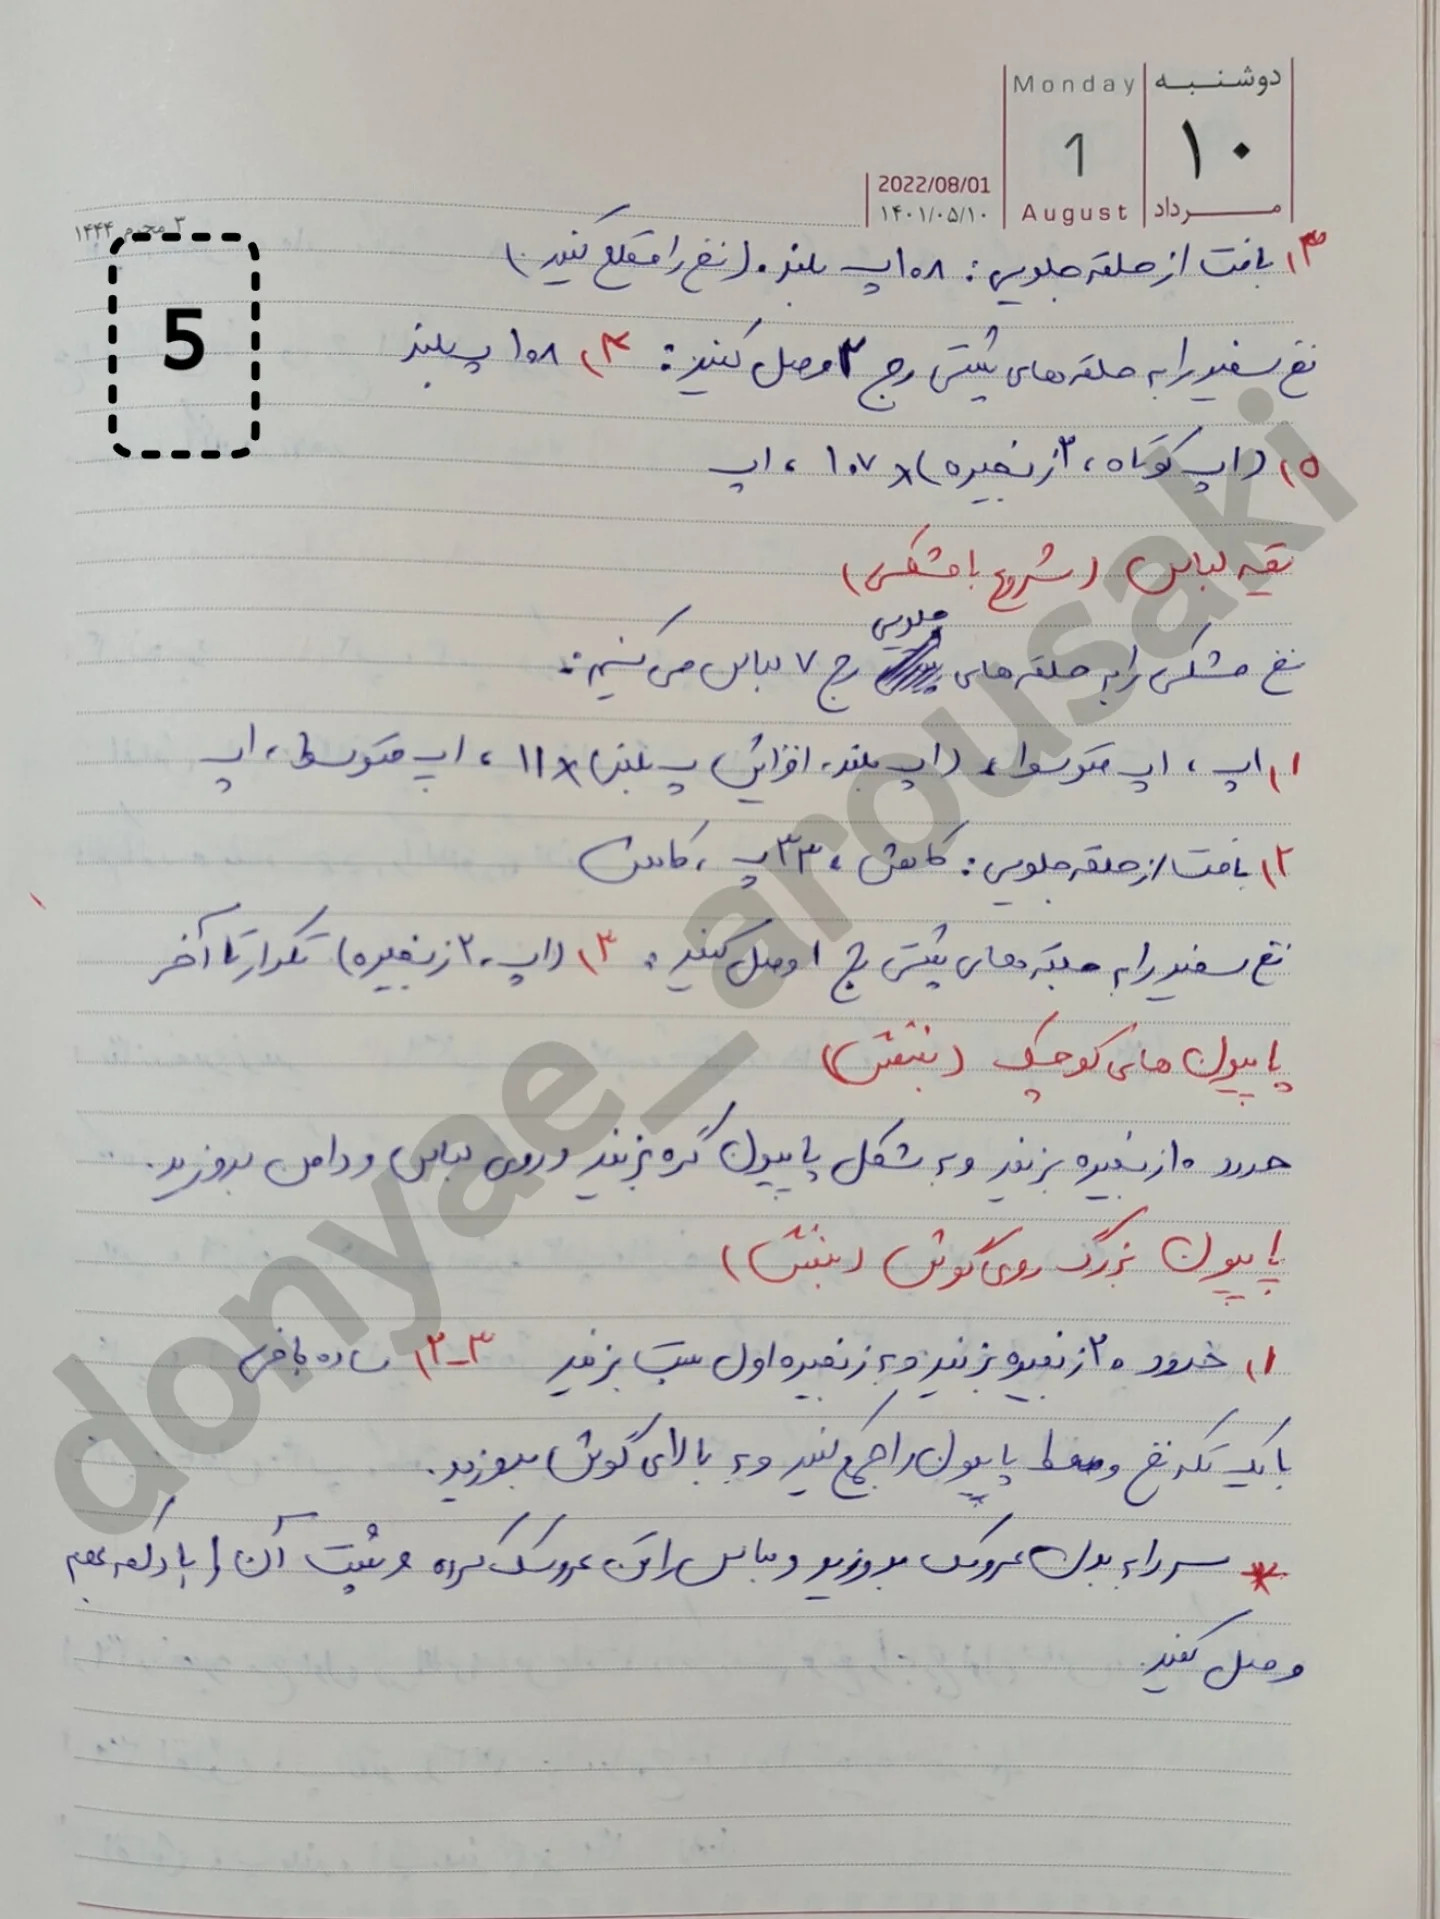 دوشنبه
Monday
۱۰
1
مرداد
August
2022/08/01
۱۴۰۱/۰۵/۱۰
۳ محرم ۱۴۴۴
5
۳) بافت از حلقه جلویی: ۱۰۸پ بلند. (نخ را قطع کنید.)
نخ سفید را به حلقه های پشتی رج ۲ وصل کنید: ۴) ۱۰۸ پ بلند
۵) (۱پ کوتاه، ۲ زنجیره)×۱۰۷، ۱پ
یقه لباس (شروع با مشکی)
نخ مشکی را به حلقه های جلویی رج ۷ لباس می کنیم:
۱) ۱پ، ۱پ متوسط، (۱پ بلند، افزایش پ بلند)×۱۱، ۱پ متوسط، ۱پ
۲) بافت از حلقه جلویی: کاهش، ۳۳پ، کاهش
نخ سفید را به حلقه های پشتی رج ۱ وصل کنید. ۳) (۱پ، ۲ زنجیره) تکرار تا آخر
پاپیون های کوچک (بنفش)
حدود ۱۰ زنجیره بزنید و به شکل پاپیون گره بزنید و روی لباس و دامن بدوزید.
پاپیون بزرگ روی گوش (بنفش)
۱) حدود ۲۰ زنجیره بزنید و به زنجیره اول بست بزنید ۳-۲) ساده بافی
با یک تکه نخ وسط پاپیون را جمع کنید و به بالای گوش بدوزید.
* سر را به بدن عروسک بدوزید و لباس را تن عروسک کرده و پشت آن را با دکمه بهم
وصل کنید.
donyae_arousaki